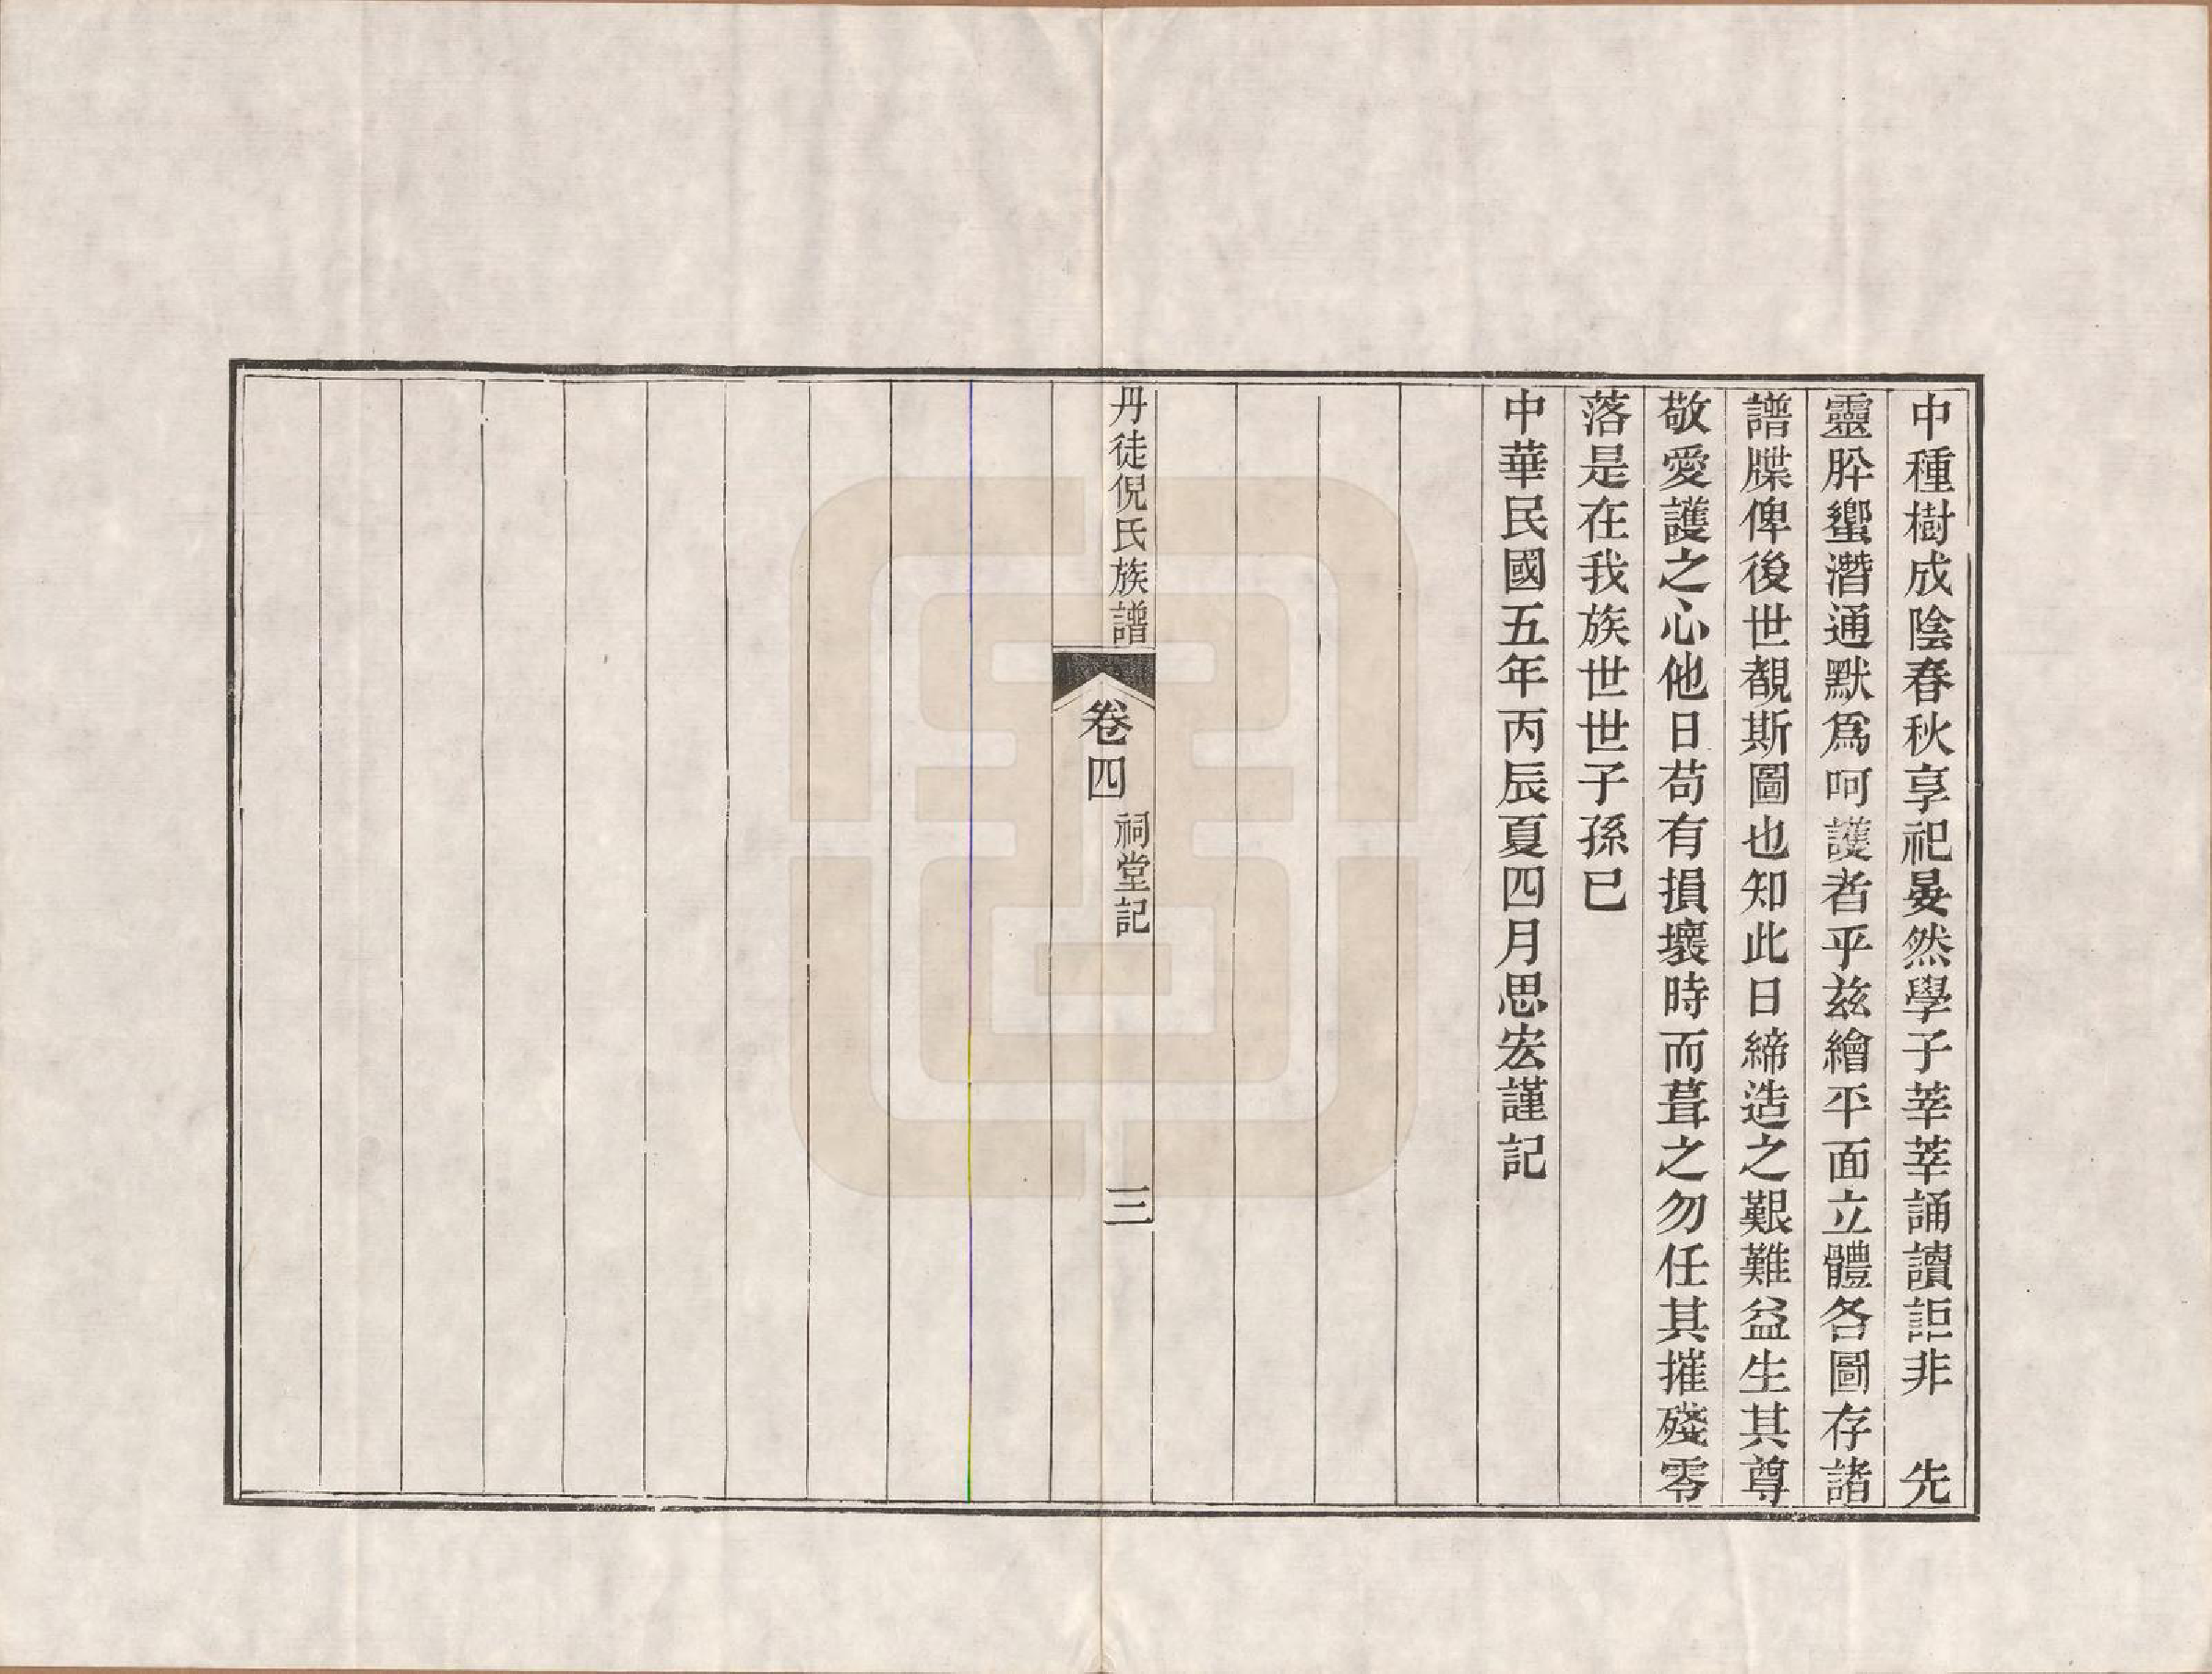 中種樹成陰春秋享祀晏然學子莘莘誦讀詎非　先
靈肸蠁潛通默爲呵護者乎兹繪平面立體各圖存諸
譜牒俾後世覩斯圖也知此日締造之艱難益生其尊
敬愛護之心他日苟有損壞時而葺之勿任其摧殘零
落是在我族世世子孫已
中華民國五年丙辰夏四月思宏謹記
丹徒倪氏族譜
卷四
祠堂記
三